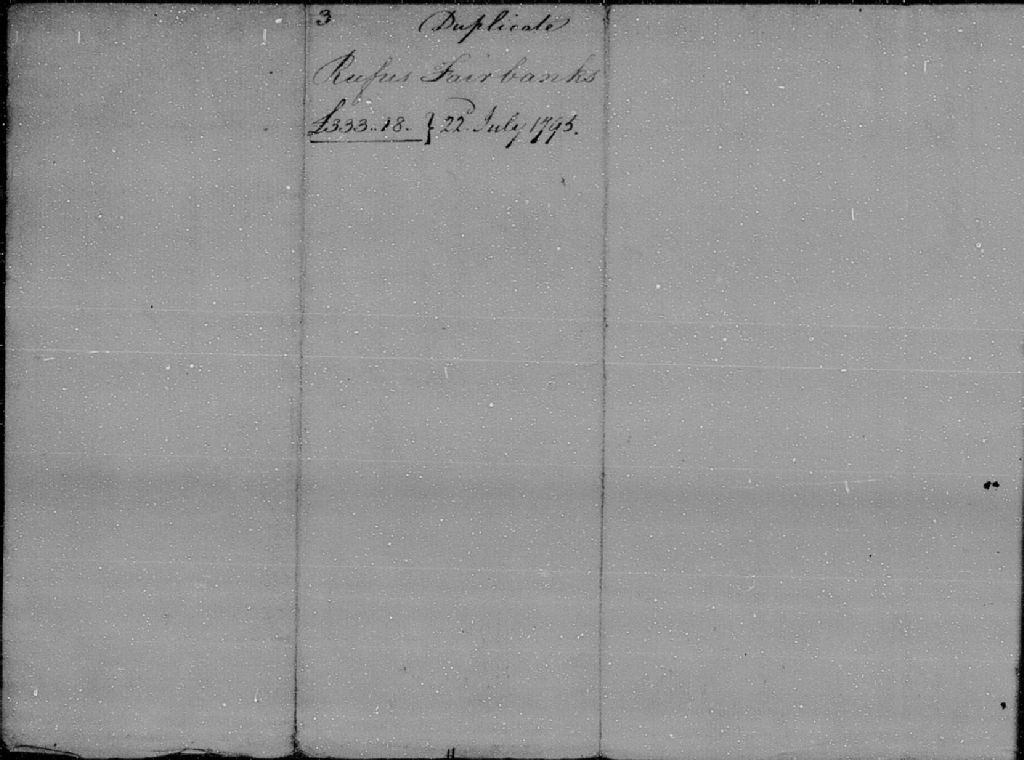 3 Duplicate
Rufus Fairbanks
£333..18. } 22d July 1795.